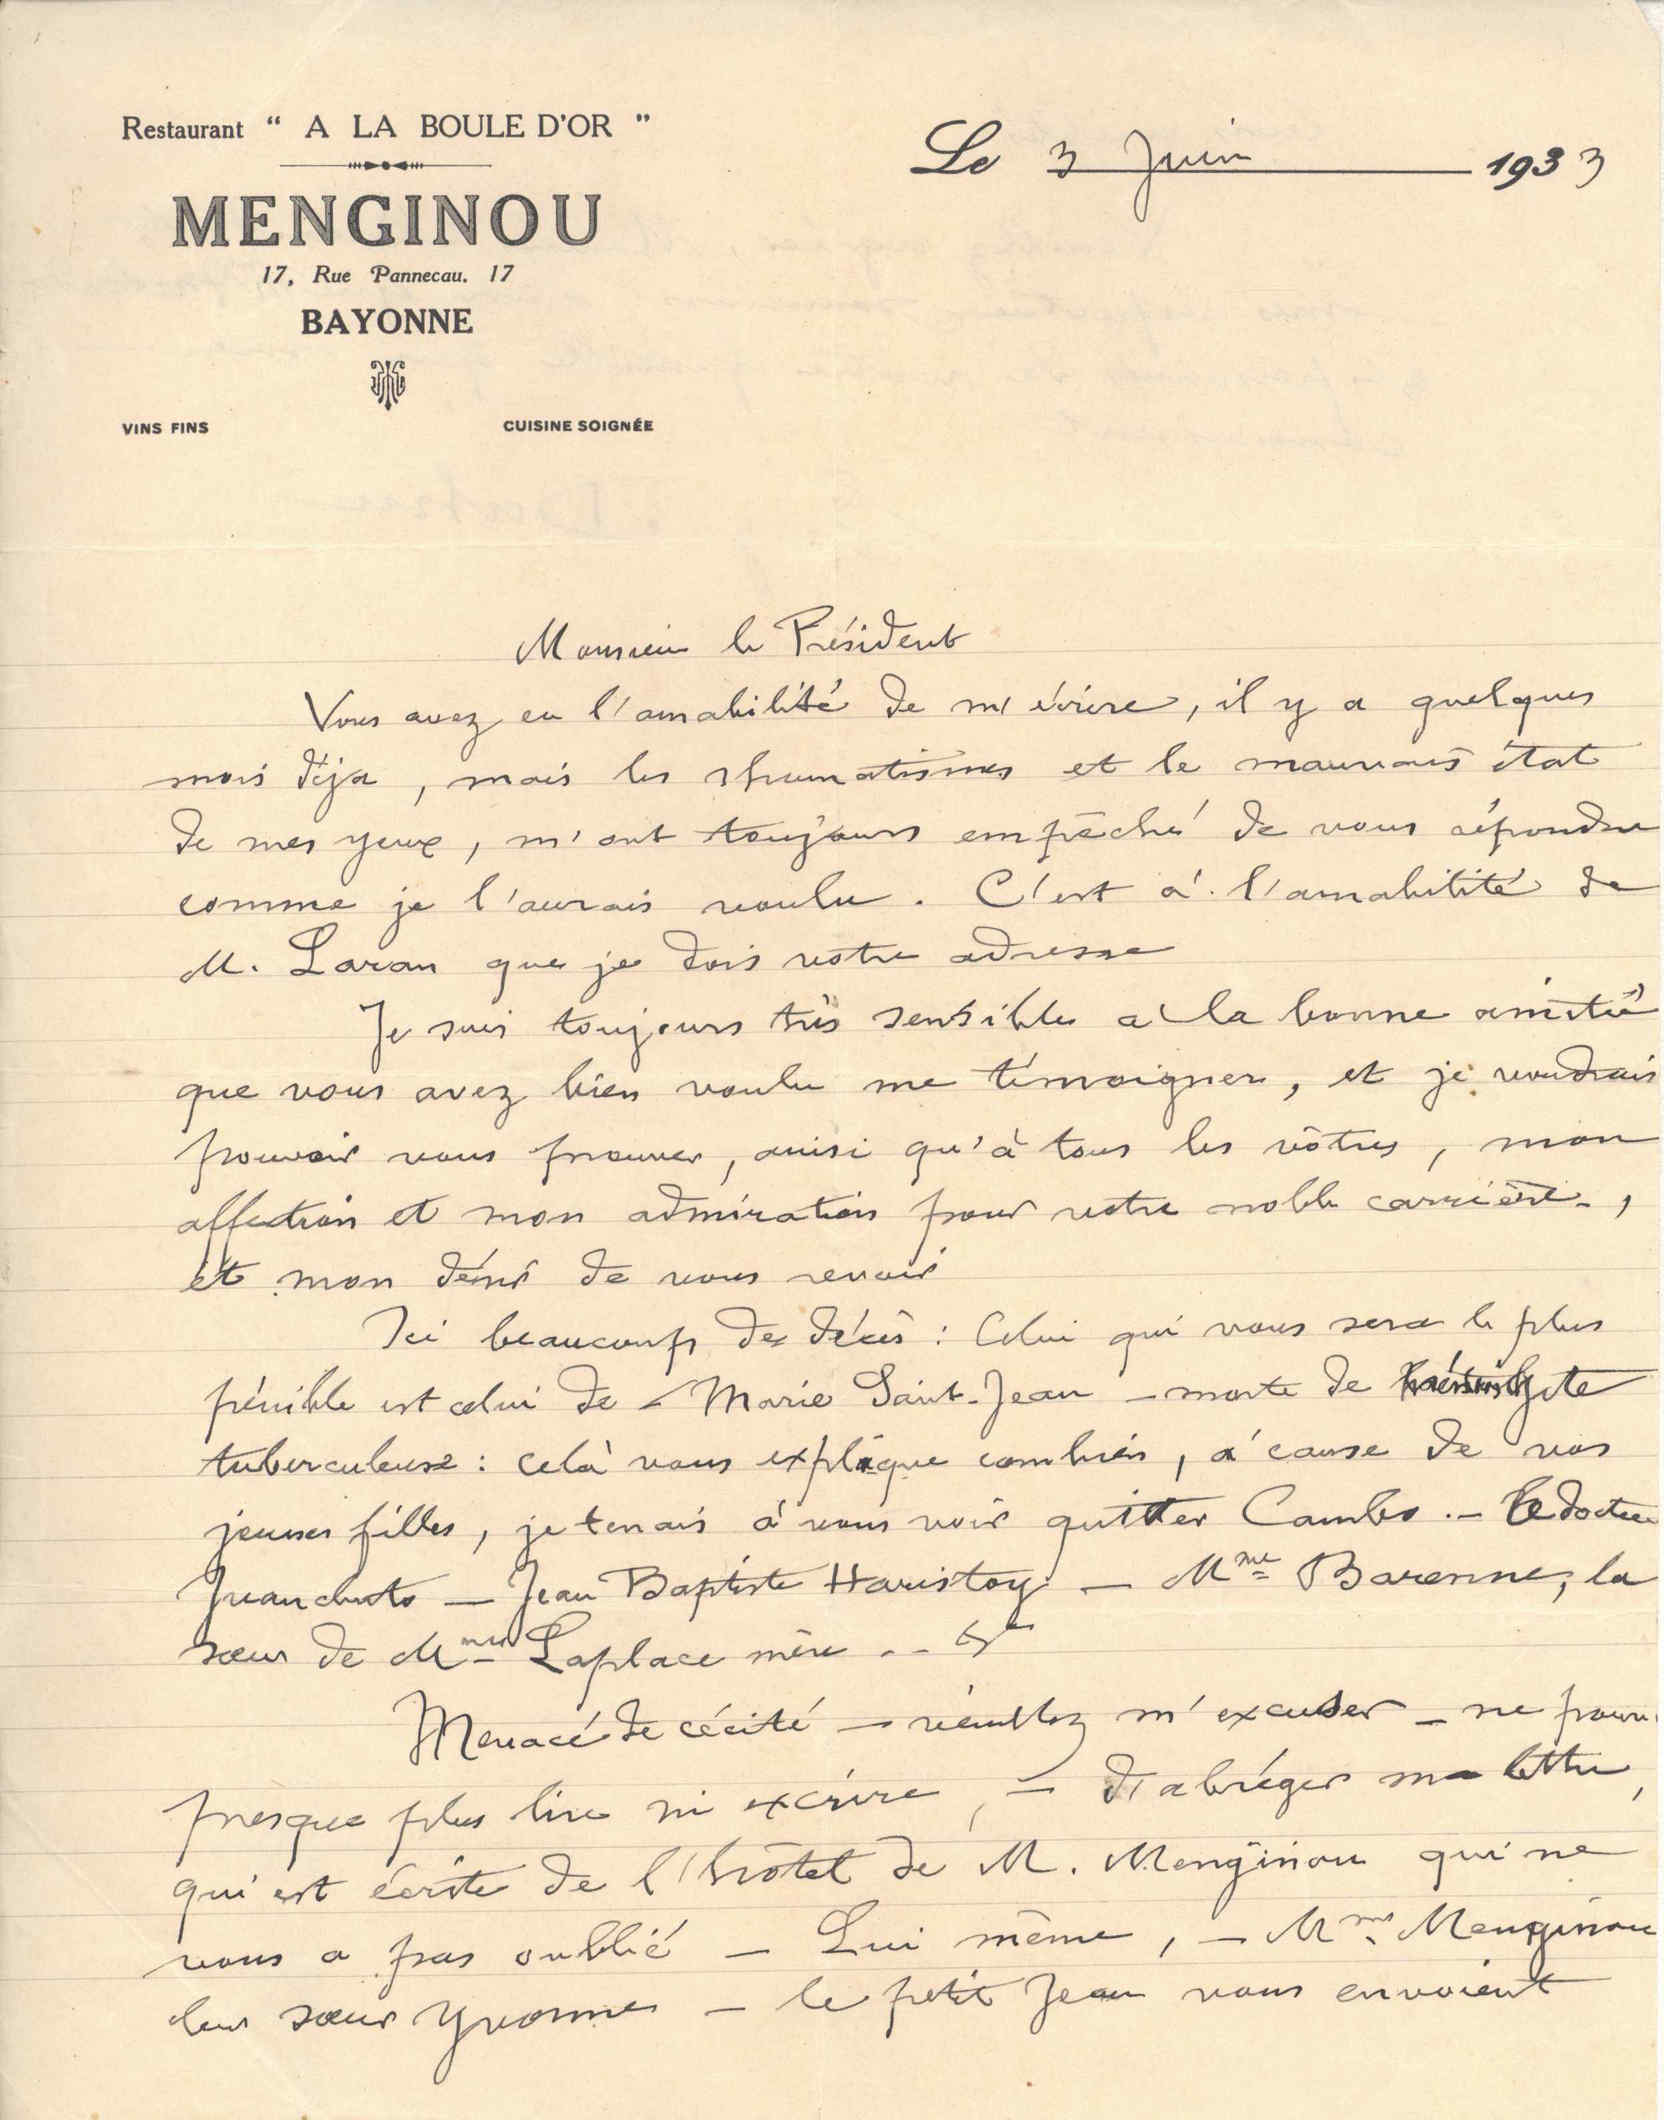 Restaurant " A LA BOULE D'OR "
MENGINOU
17, Rue Pannecau. 17
BAYONNE
VINS FINS
CUISINE SOIGNÉE
Le 3 Juin 1933
Monsieur le Président
Vous avez eu l'amabilité de m'écrire, il y a quelques
mois déja, mais les rhumatismes et le mauvais état
de mes yeux, m'ont toujours empêché de vous répondre
comme je l'aurais voulu. C'est à l'amabilité de
M. Laran que je dois votre adresse
Je suis toujours très sensible à la bonne amitié
que vous avez bien voulu me témoigner, et je voudrais
pouvoir vous prouver, ainsi qu'à tous les vôtres, mon
affection et mon admiration pour votre noble carrière,
et mon désir de vous revoir
Ici beaucoup de décès : Celui qui vous sera le plus
pénible est celui de - Marie Saint-Jean - morte de
tuberculeuse : celà vous explique combien, à cause de vos
jeunes filles, je tenais à vous voir quitter Cambo. - Le docteur
Juanchuto - Jean Baptiste Haristoy - Mme Barenne, la
sœur de Mme Laplace mère
Menacé de cécité - veuillez m'excuser - ne pouv
presque plus lire ni excrire, - d'abréger ma lettre,
qui est écrite de l'hôtel de M. Menginou qui ne
vous a pas oublié - Lui même, - Mme Menginou
leur sœur Yvonne - le petit Jean vous envoient